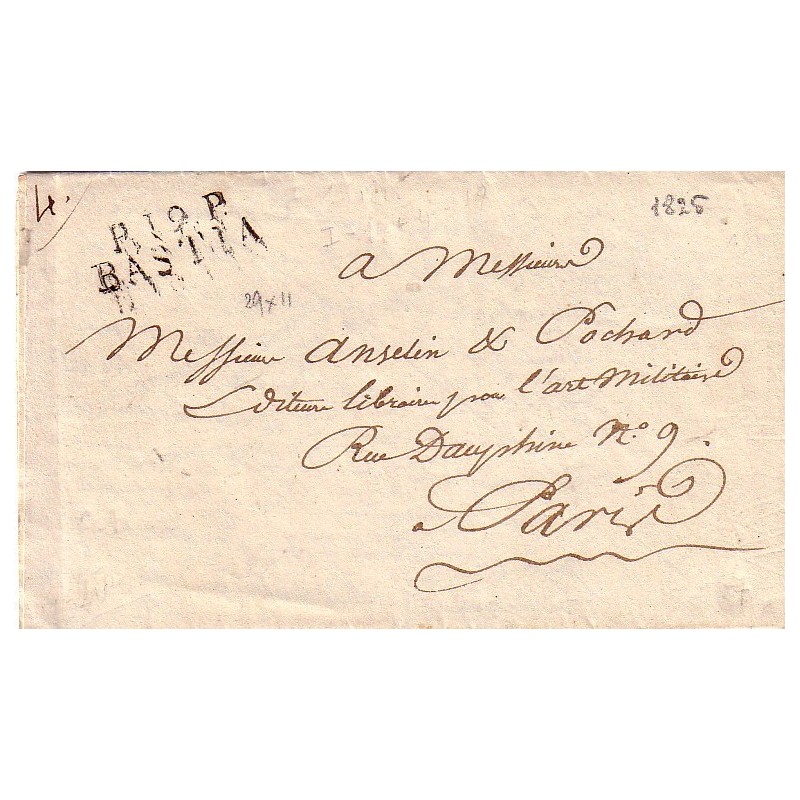 4.
P.19.P.
BASTIA
1825
29 x 11
a Messieurs
Messieurs Anselin & Pochard
Editeurs libraires pour l'art Militaire
Rue Dauphine N.o 9.
a Paris